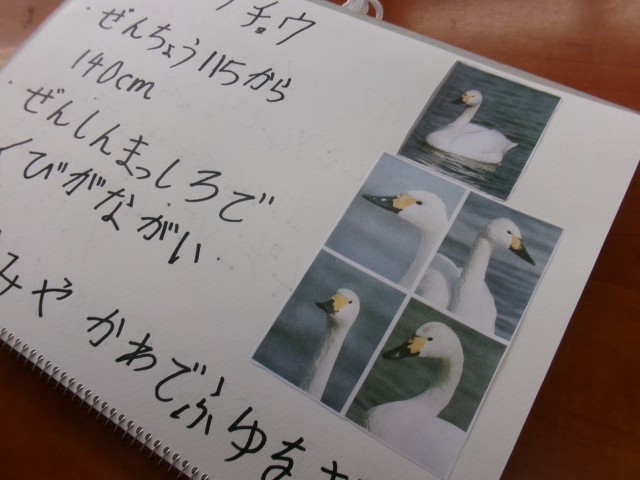 チョウ
・ぜんちょう115から
140cm
・ぜんしんまっしろで
くびがながい。
みや かわでふゆを